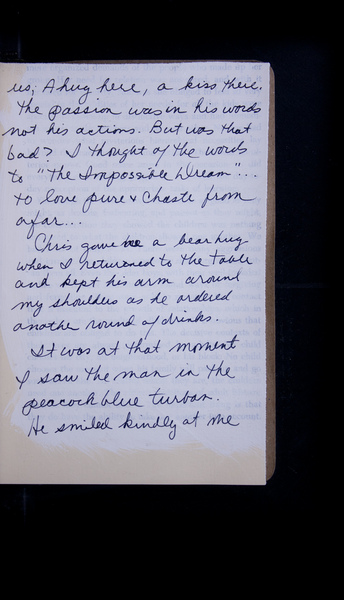 us; A hug here, a kiss there.
The passion was in his words
not his actions. But was that
bad? I thought of the words
to "The Impossible Dream"...
to love pure & chaste from
afar...
Chris gave me a bear hug
when I returned to the table
and kept his arm around
my shoulders as he ordered
another round of drinks.
It was at that moment
I saw the man in the
peacock blue turban.
He smiled kindly at me